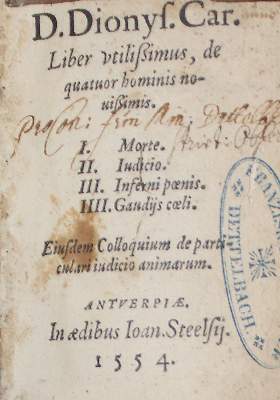 D. Dionyſ. Car.
Liber vtiliſſimus, de
quatuor hominis no-
uiſſimis.
I. Morte.
II. Iudicio.
III. Inferni pœnis.
IIII. Gaudijs cœli.
Eiuſdem Colloquium de parti
culari iudicio animarum.
ANTVERPIÆ.
In ædibus Ioan. Steelſij.
1554.
DETTELBACH.